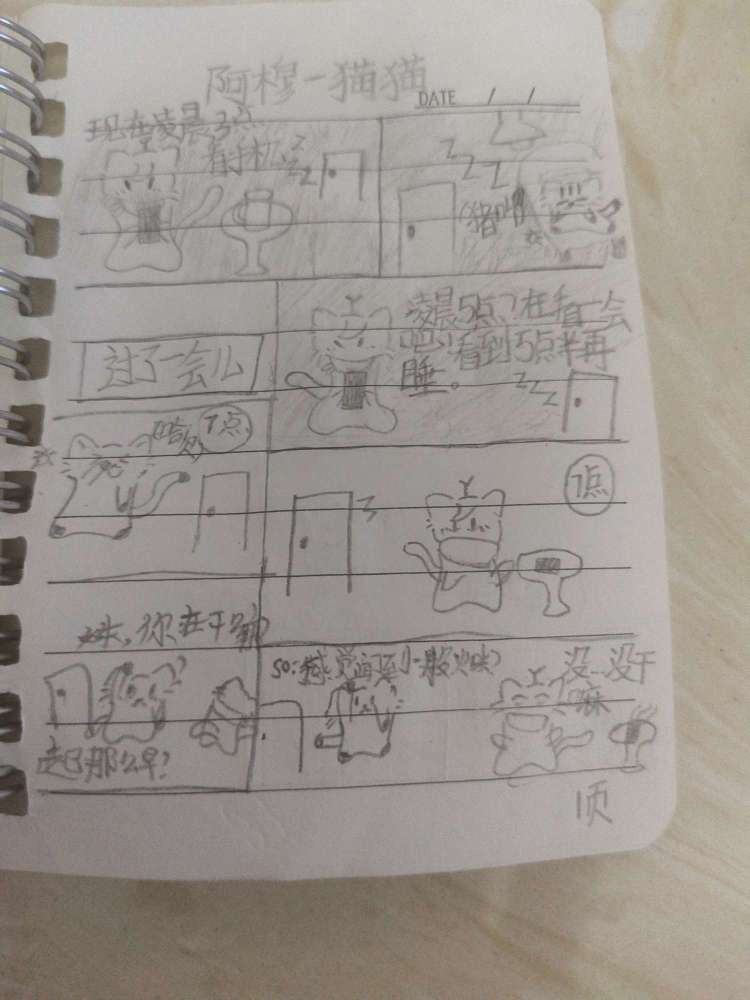 阿穆一猫猫
DATE / /
现在凌晨3点
看手机
z
zz
z
z
z
过了一会儿
凌晨5点？在看一会
吧！看到5点半再
睡。
z
z
z
7点
z
7点
妹，你在干嘛
起那么早？
so:感觉闻到一股火味
没…没干
嘛
1页